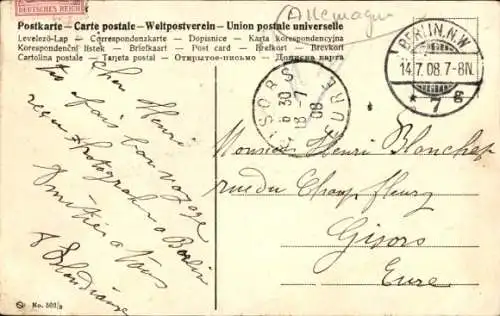 DEUTSCHES REICH
Postkarte – Carte postale – Weltpostverein – Union postale universelle
Levelező-Lap – Correspondenzkarte – Dopisnice – Karta korespondencyjna
Korespondenční listek – Briefkaart – Post card – Brefkort – Brevkort
Cartolina postale – Tarjeta postal – Открытое письмо – Дописна карта
Allemagne
BERLIN. N.W
14.7.08.7-8N.
* 7 g
GISORS
8 30
18 -7
08
EURE
Cher Henri
tu as fais bon voyage
Photographie à Berlin
Amitiés à Vous
Monsieur Henri Blanchet
rue du Champ fleury
Gisors
Eure
No. 502/3